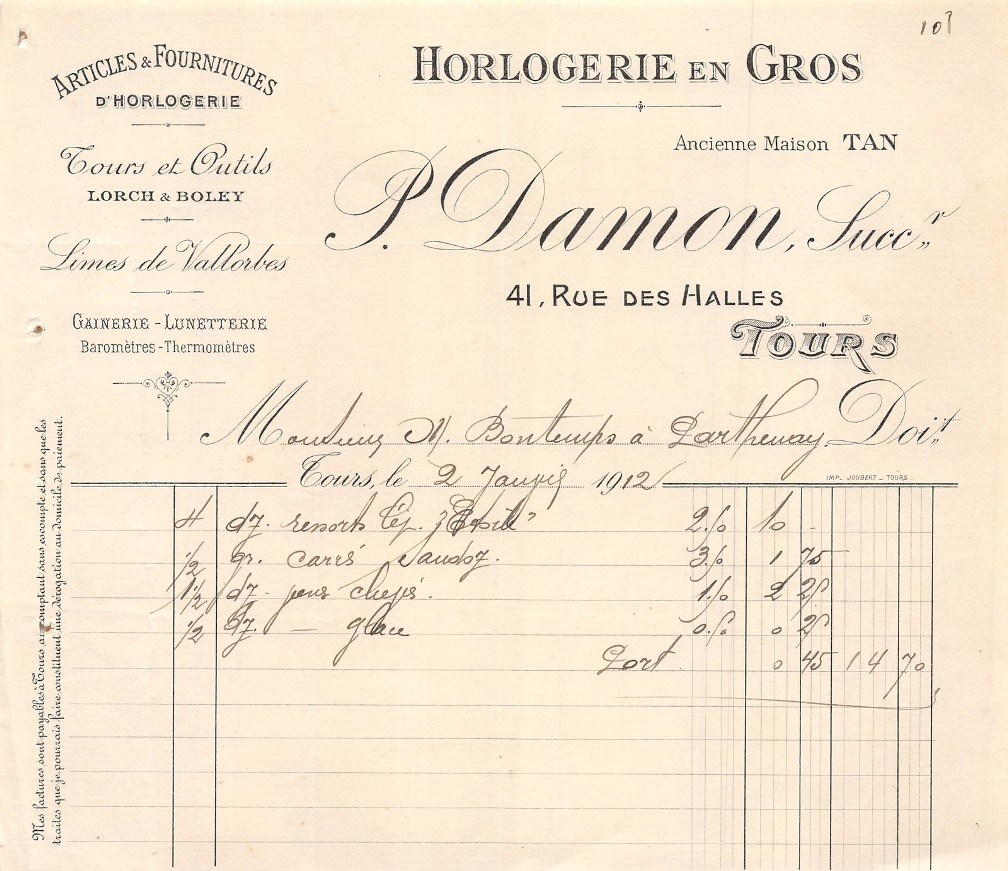 101
ARTICLES & FOURNITURES
D'HORLOGERIE
Tours et Outils
LORCH & BOLEY
Limes de Vallorbes
GAINERIE - LUNETTERIE
Baromètres - Thermomètres
HORLOGERIE EN GROS
Ancienne Maison TAN
P. Damon, Succ.r
41, RUE DES HALLES
TOURS
Monsieur M. Bontemps à Parthenay Doit
Tours, le 2 Janvier 1912
IMP. JOUBERT - TOURS.
4 dz. ressorts 2.50 10 -
1/2 gr. carrés 3.50 1 75
1 1/2 dz. 1.50 2 25
1/2 dz. — glace 0.50 0 25
Port 0 45 14 70
Mes factures sont payables à Tours, au comptant sans escompte et sans que les
traites que je pourrais faire constituent une dérogation au domicile de paiement.